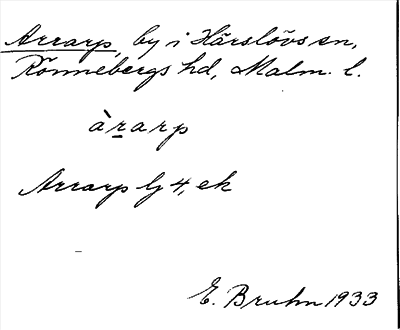 Arrarp, by i Härslövs sn,
Rönnebergs hd, Malm. l.
àrarp
Arrarp lj 4, ek
E. Bruhn 1933